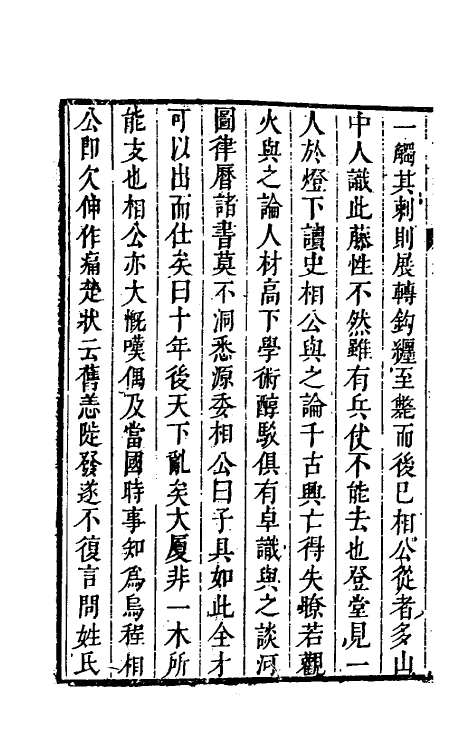 一觸其刺則展轉鈎纒至斃而後已相公從者多山
中人識此藤性不然雖有兵仗不能去也登堂見一
人於燈下讀史相公與之論千古興亡得失瞭若觀
火與之論人材高下學術醇駁俱有卓識與之談河
圖律曆諸書莫不洞悉源委相公曰子具如此全才
可以出而仕矣曰十年後天下亂矣大厦非一木所
能支也相公亦大慨嘆偶及當國時事知爲烏程相
公即欠伸作痛楚狀云舊恙陡發遂不復言問姓氏